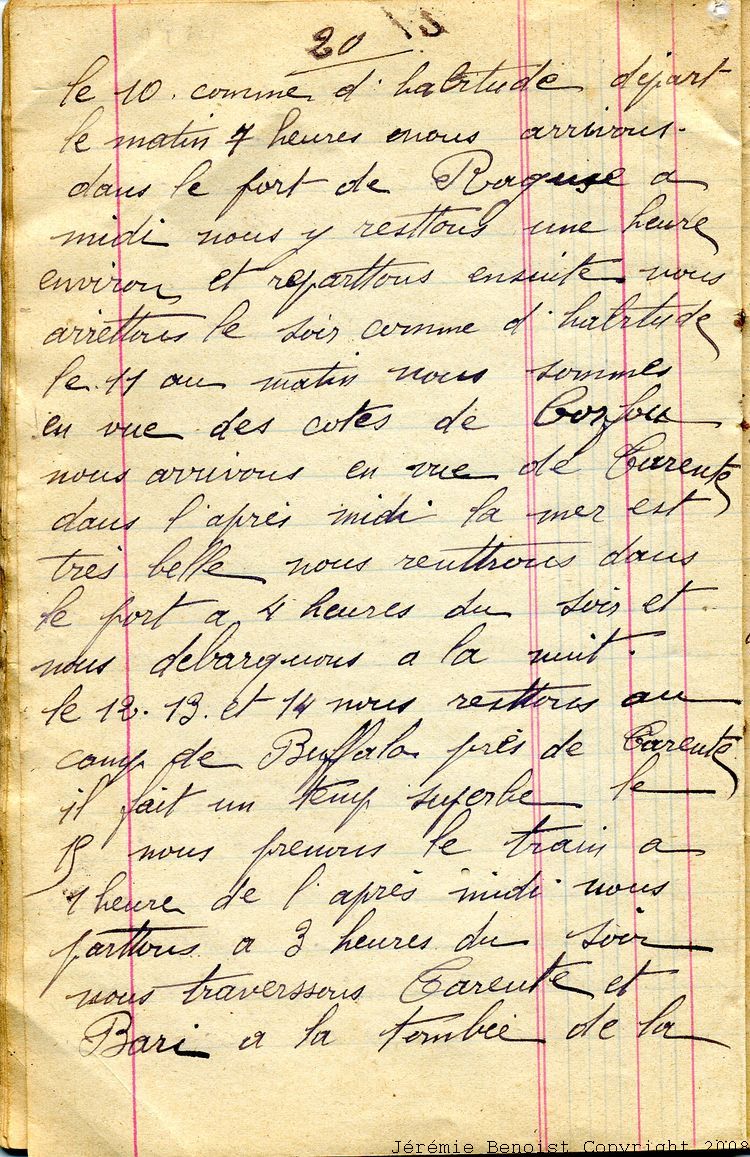 20
le 10. comme d'habitude départ
le matin 7 heures nous arrivons.
dans le port de Raguse a
midi nous y resttons une heure
environ et reparttons ensuite nous
arrettons le soir comme d'habitude
le 11 au matin nous sommes
en vue des cotes de Corfou
nous arrivons en vue de Tarente
dans l'après midi la mer est
très belle nous renttrons dans
le port a 4 heures du soir et
nous debarquons a la nuit.
le 12. 13. et 14 nous resttons au
camp de Buffalo près de Tarente
il fait un temp superbe le
15 nous prenons le train a
1 heure de l'après midi nous
parttons a 3 heures du soir
nous traverssons Tarente et
Bari a la tombée de la
Jérémie Benoist Copyright 2008